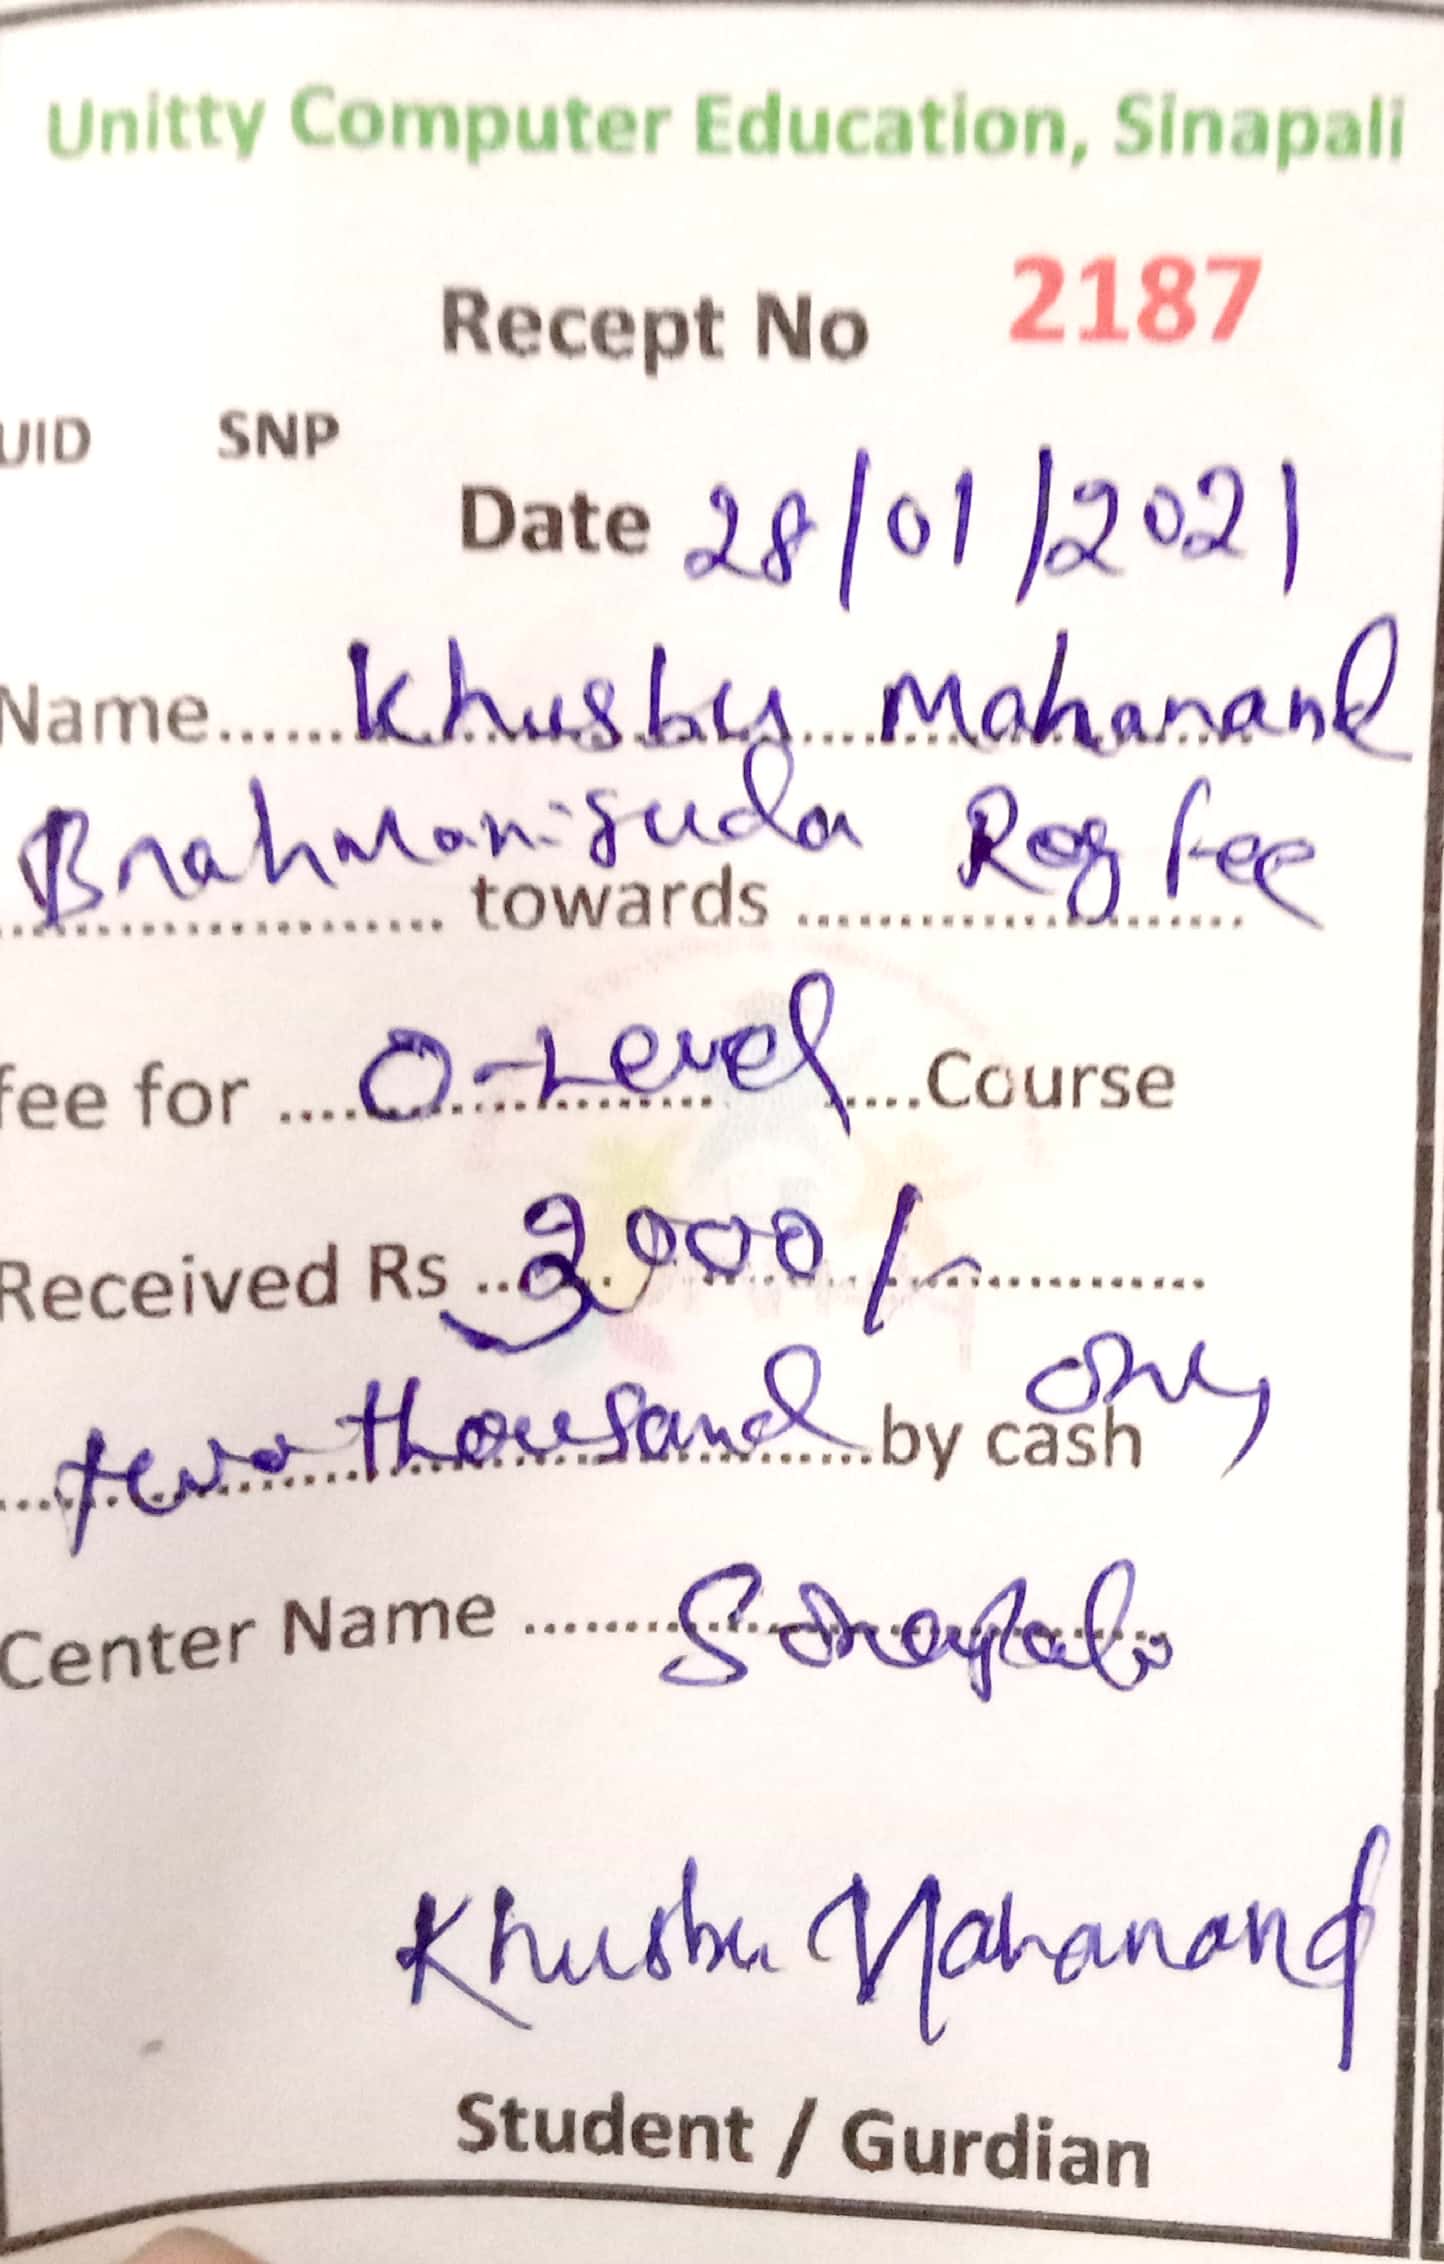 Unitty Computer Education, Sinapali
Recept No 2187
UID SNP
Date 28/01/2021
Name...... Khusbu Mahanand
Brahmaniguda towards Reg fee
fee for .... O-Level ....Course
Received Rs .. 000/-
two thousand by cash only
Center Name ......... Sinapali
Khusbu Mahanand
Student / Gurdian